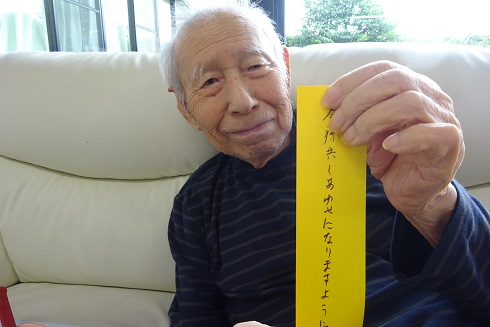 弥共しあわせになりますように